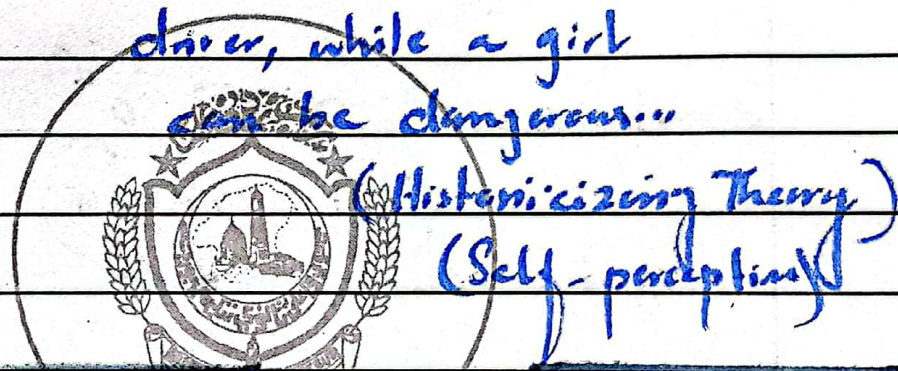 driver, while a girl
can be dangerous...
(Historicizing Theory)
(Self-perception)